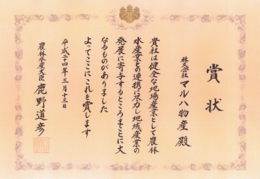 賞状
株式会社
マルハ物産 殿
貴社は健全な地場産業として農林
水産業を連携に尽力し地域産業の
発展に寄与するところまことに大
なるものがありました
よってここにこれを賞します
平成二十四年三月十三日
農林水産大臣 鹿野道彦